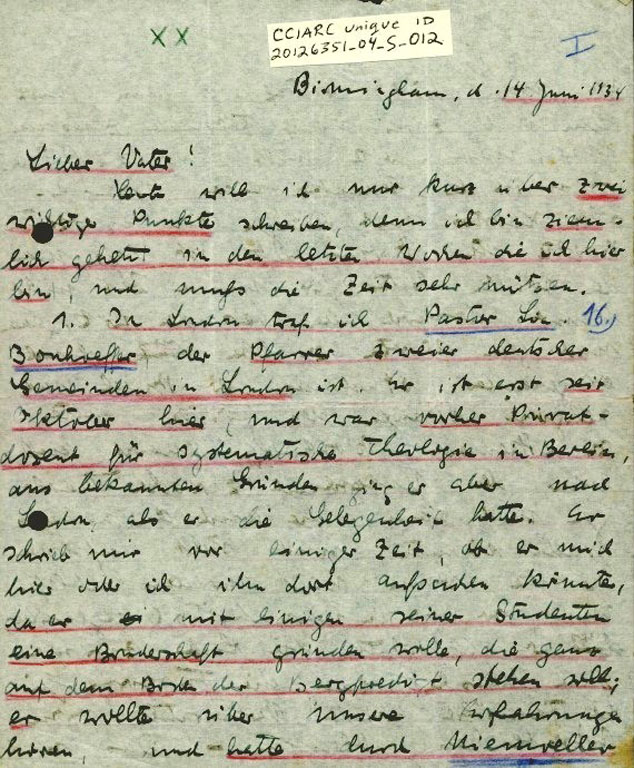 XX
CCIARC unique ID
20126351-04-S-012
I
Birmingham, d. 14 Juni 1934
Lieber Vater!
Heute will ich nur kurz über zwei
wichtige Punkte schreiben, denn ich bin ziem-
lich gehetzt in den letzten Wochen die ich hier
bin, und muss die Zeit sehr nützen.
1. In London traf ich Pastor Lic. 16.)
Bonhoeffer, der Pfarrer zweier deutscher
Gemeinden in London ist. Er ist erst seit
Oktober hier, und war vorher Privat-
dozent für systematische Theologie in Berlin,
aus bekannten Gründen ging er aber nach
London, als er die Gelegenheit hatte. Er
schrieb mir vor einiger Zeit, ob er mich
hier oder ich ihn dort aufsuchen könnte,
da er mit einigen seiner Studenten
eine Bruderschaft gründen wolle, die ganz
auf dem Boden der Bergpredigt stehen soll;
er wollte über unsere Erfahrungen
hören, und hatte durch Niemoeller